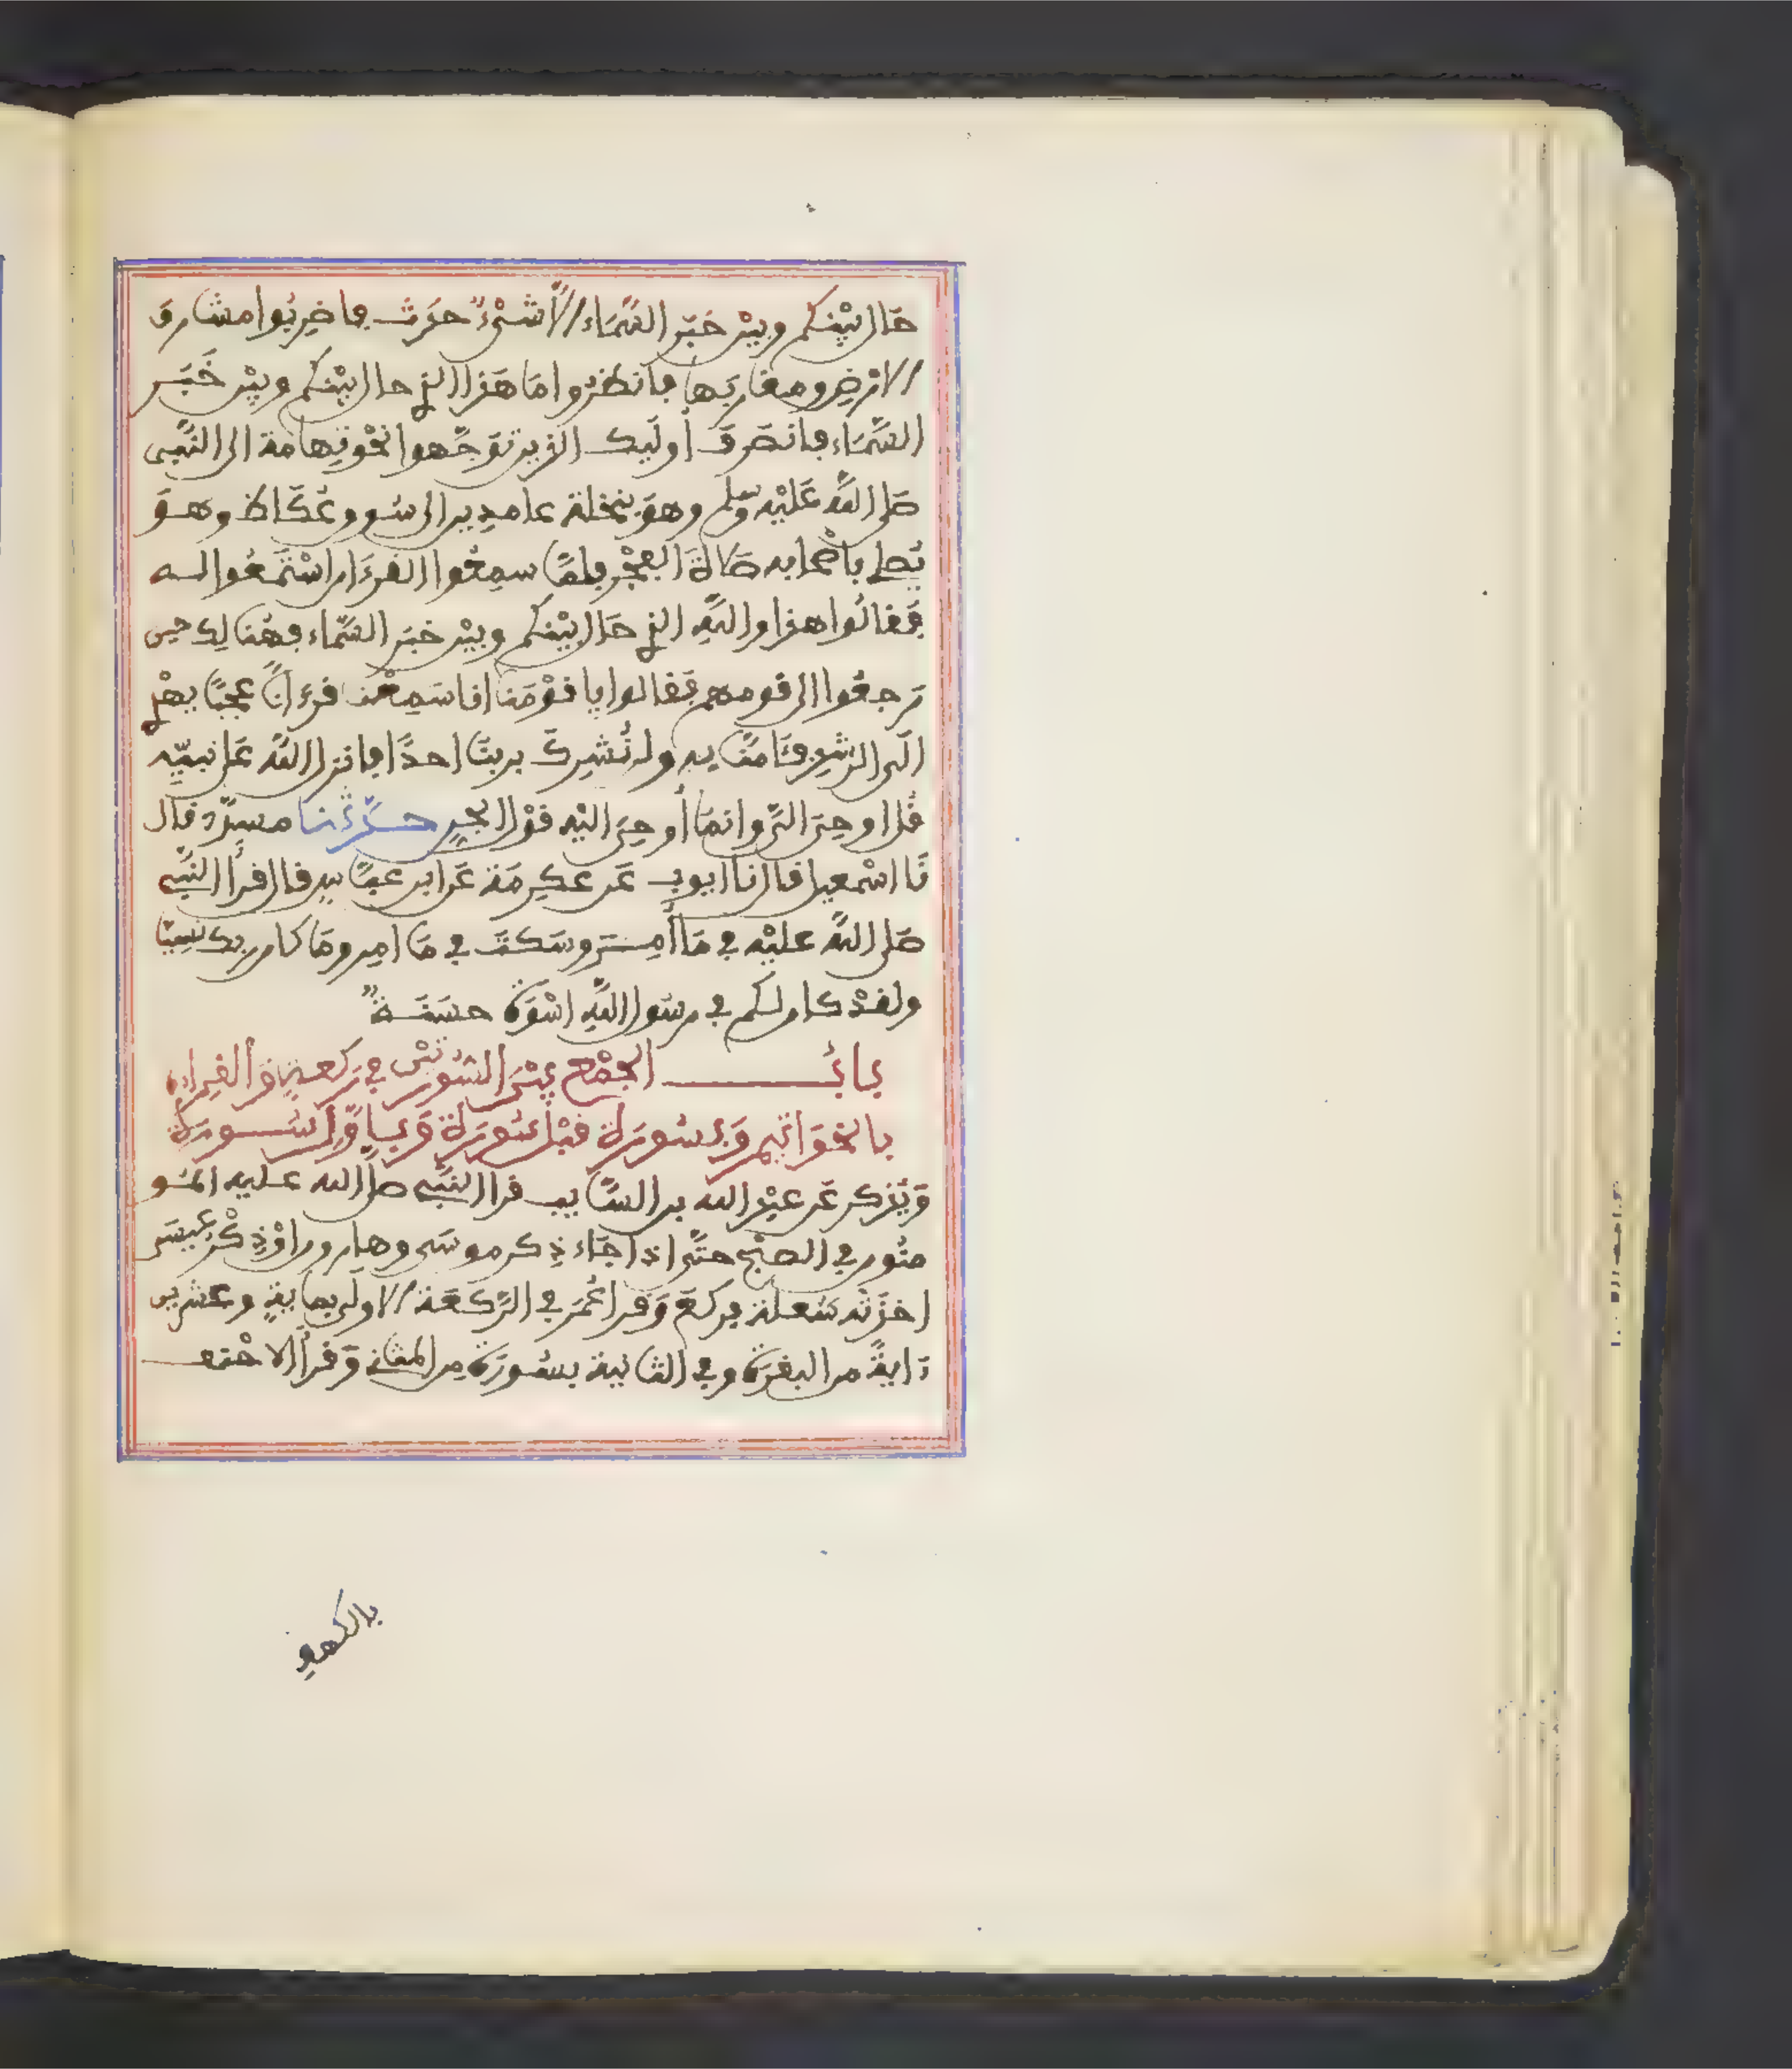 حَال بَيْنكم وبيْن خبَر السَّمَاء الَّا شىْءٌ حدَث فاضرِبُوا مشارق
الارْض ومغاربَها فانظروا مَا هَذا الذي حال بيْنكم وبيْن خَبَر
السَّمَاء فانصَرفَ أولَيك الذين توَجَّهوا نحْو تِهامة الى النَّبيّ
صَلى اللَّه عَليْه وسلم وهوَ بنخلة عامدين الى سُوق عُكَاظ وهوَ
يُصلي باصْحابه صَلاةَ الفجْر فلمَّا سمِعُوا القرءَان اسْتَمعُوا لــه
فَقالُوا هذا واللَّهِ الذي حَال بيْنكم وبيْن خبَر السَّماء فهُنالِك حين
رَجعُوا الى قومهم فَقالوا يا قوْمَنا انا سَمِعْنا قرءَانًا عجَبًا يهْدي
الَى الرشْدِ فَـَامنَّا بِهِ ولن نُشرِكَ بربنَّا احدًا فانزل اللَّه عَلى نبيِّه
قُل اوحِيَ الَيّ وانمَّا أوحِيَ اليْه قوْل الجِنِ حــدَّثنــا مسدَّد قال
نَا اسْمعيل قال نا ايوب عَن عكِرمَة عَن ابن عبَّاسٍ قال قرأ النَّبي
صَلى اللَّه عليْه في مَا أُمِــر وسَكتَ في مَا امِر ومَا كان ربك نسِيّا
ولقدْ كان لكم في رسُول اللَّهِ اسْوَة حسَنَــةٌ
بابُـــــــــ الجمْع بيْنَ السُورتيْن في ركعــةٍ وَالقِراءة
بالخوَاتِيم وَبسُورَة قبْل سُورَة وَبـاوَّل سُــورَة
وَيُذكر عَن عبْد الله بن السَّايب قرا النَّبي صلى الله عليه المُـو
منُون في الصبْح حتَّى اذا جَاء ذِكر موسَى وهارون اوْ ذِكْر عيسَى
اخذتْه سَعلة فركعَ وَقرا عُمَر في الرَّكعَة الاولى بمايةٍ وعشرين
ءَايةً من البقرَة وفي الثانية بسُورَة مِن المثاني وَقرأ الاحْنــف
بالكهف